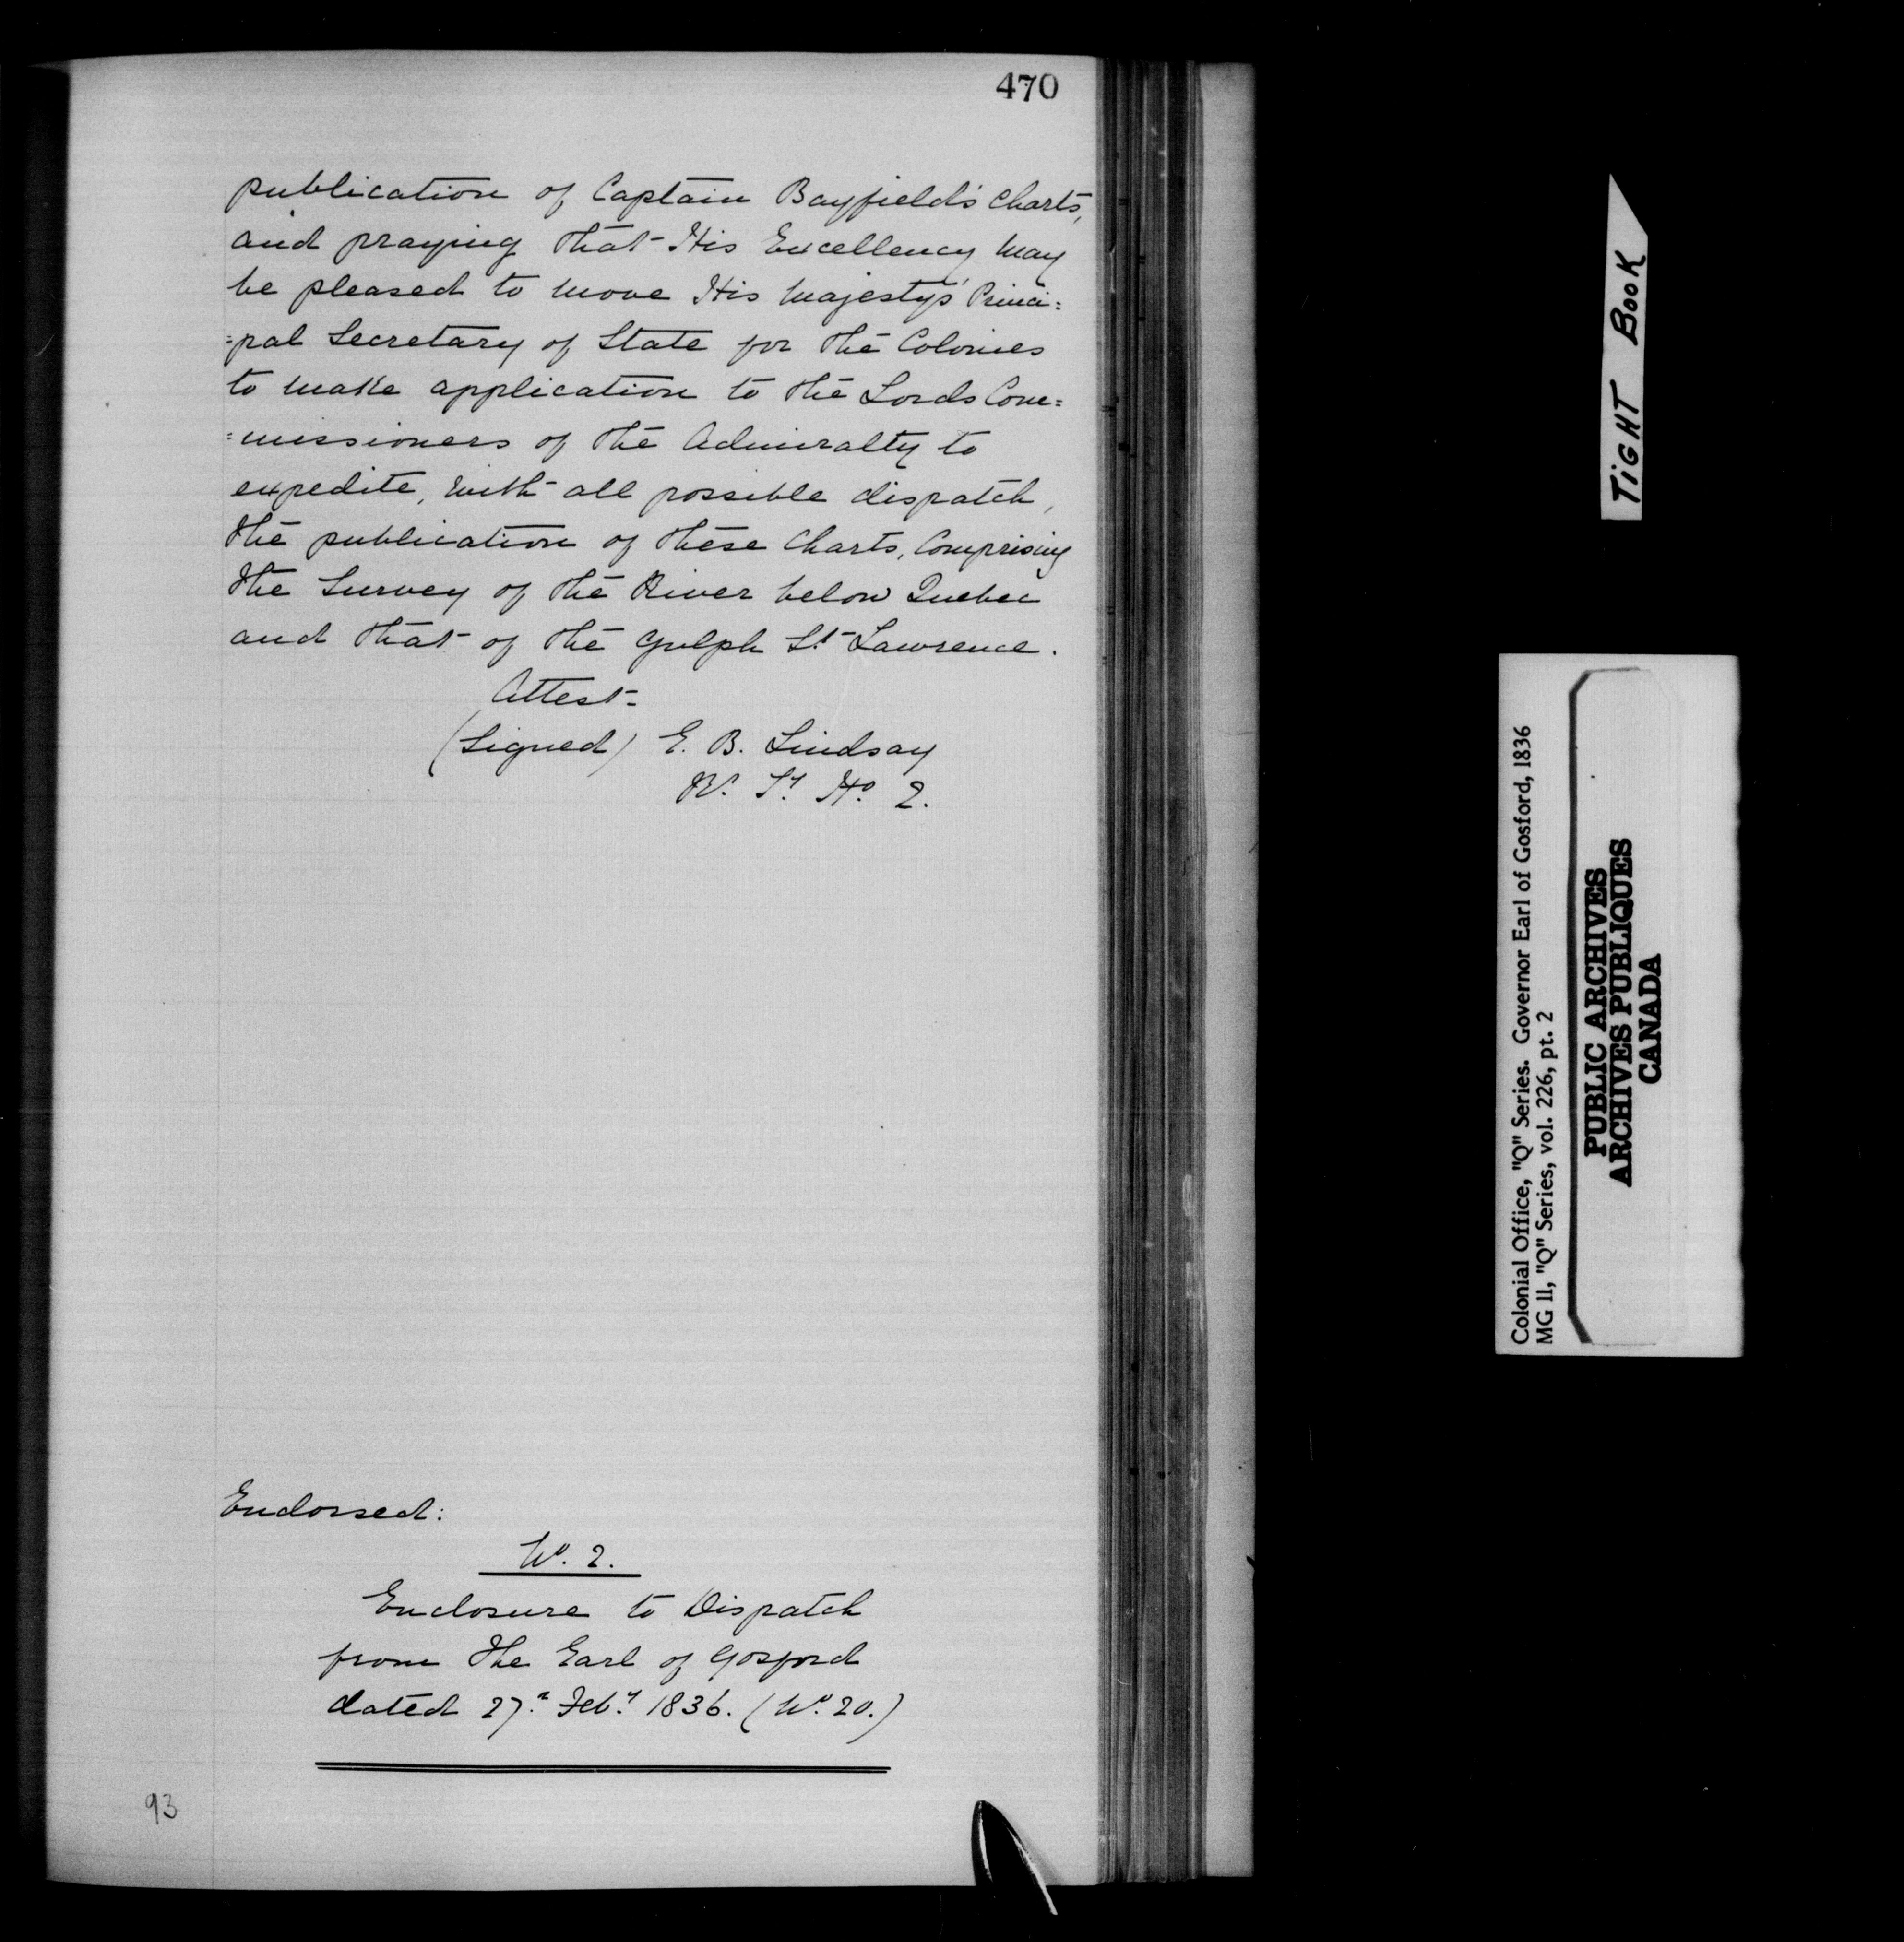 470
publication of Captain Bayfield's Charts,
and praying that His Excellency may
be pleased to move His Majesty's Princi=
=pal Secretary of State for the Colonies
to make application to the Lords Com=
=missioners of the Admiralty to
expedite, with all possible dispatch,
the publication of these Charts, Comprising
the Survey of the River below Quebec
and that of the Gulph St. Lawrence.
Attest
(Signed) E. B. Lindsay
Endorsed:
No. 2.
Enclosure to Dispatch
from the Earl of Gosford
dated 27. Feby. 1836. (No. 20.)
93
TIGHT BOOK
Colonial Office, "Q" Series. Governor Earl of Gosford, 1836
MG 11, "Q" Series, vol. 226, pt. 2
PUBLIC ARCHIVES
ARCHIVES PUBLIQUES
CANADA